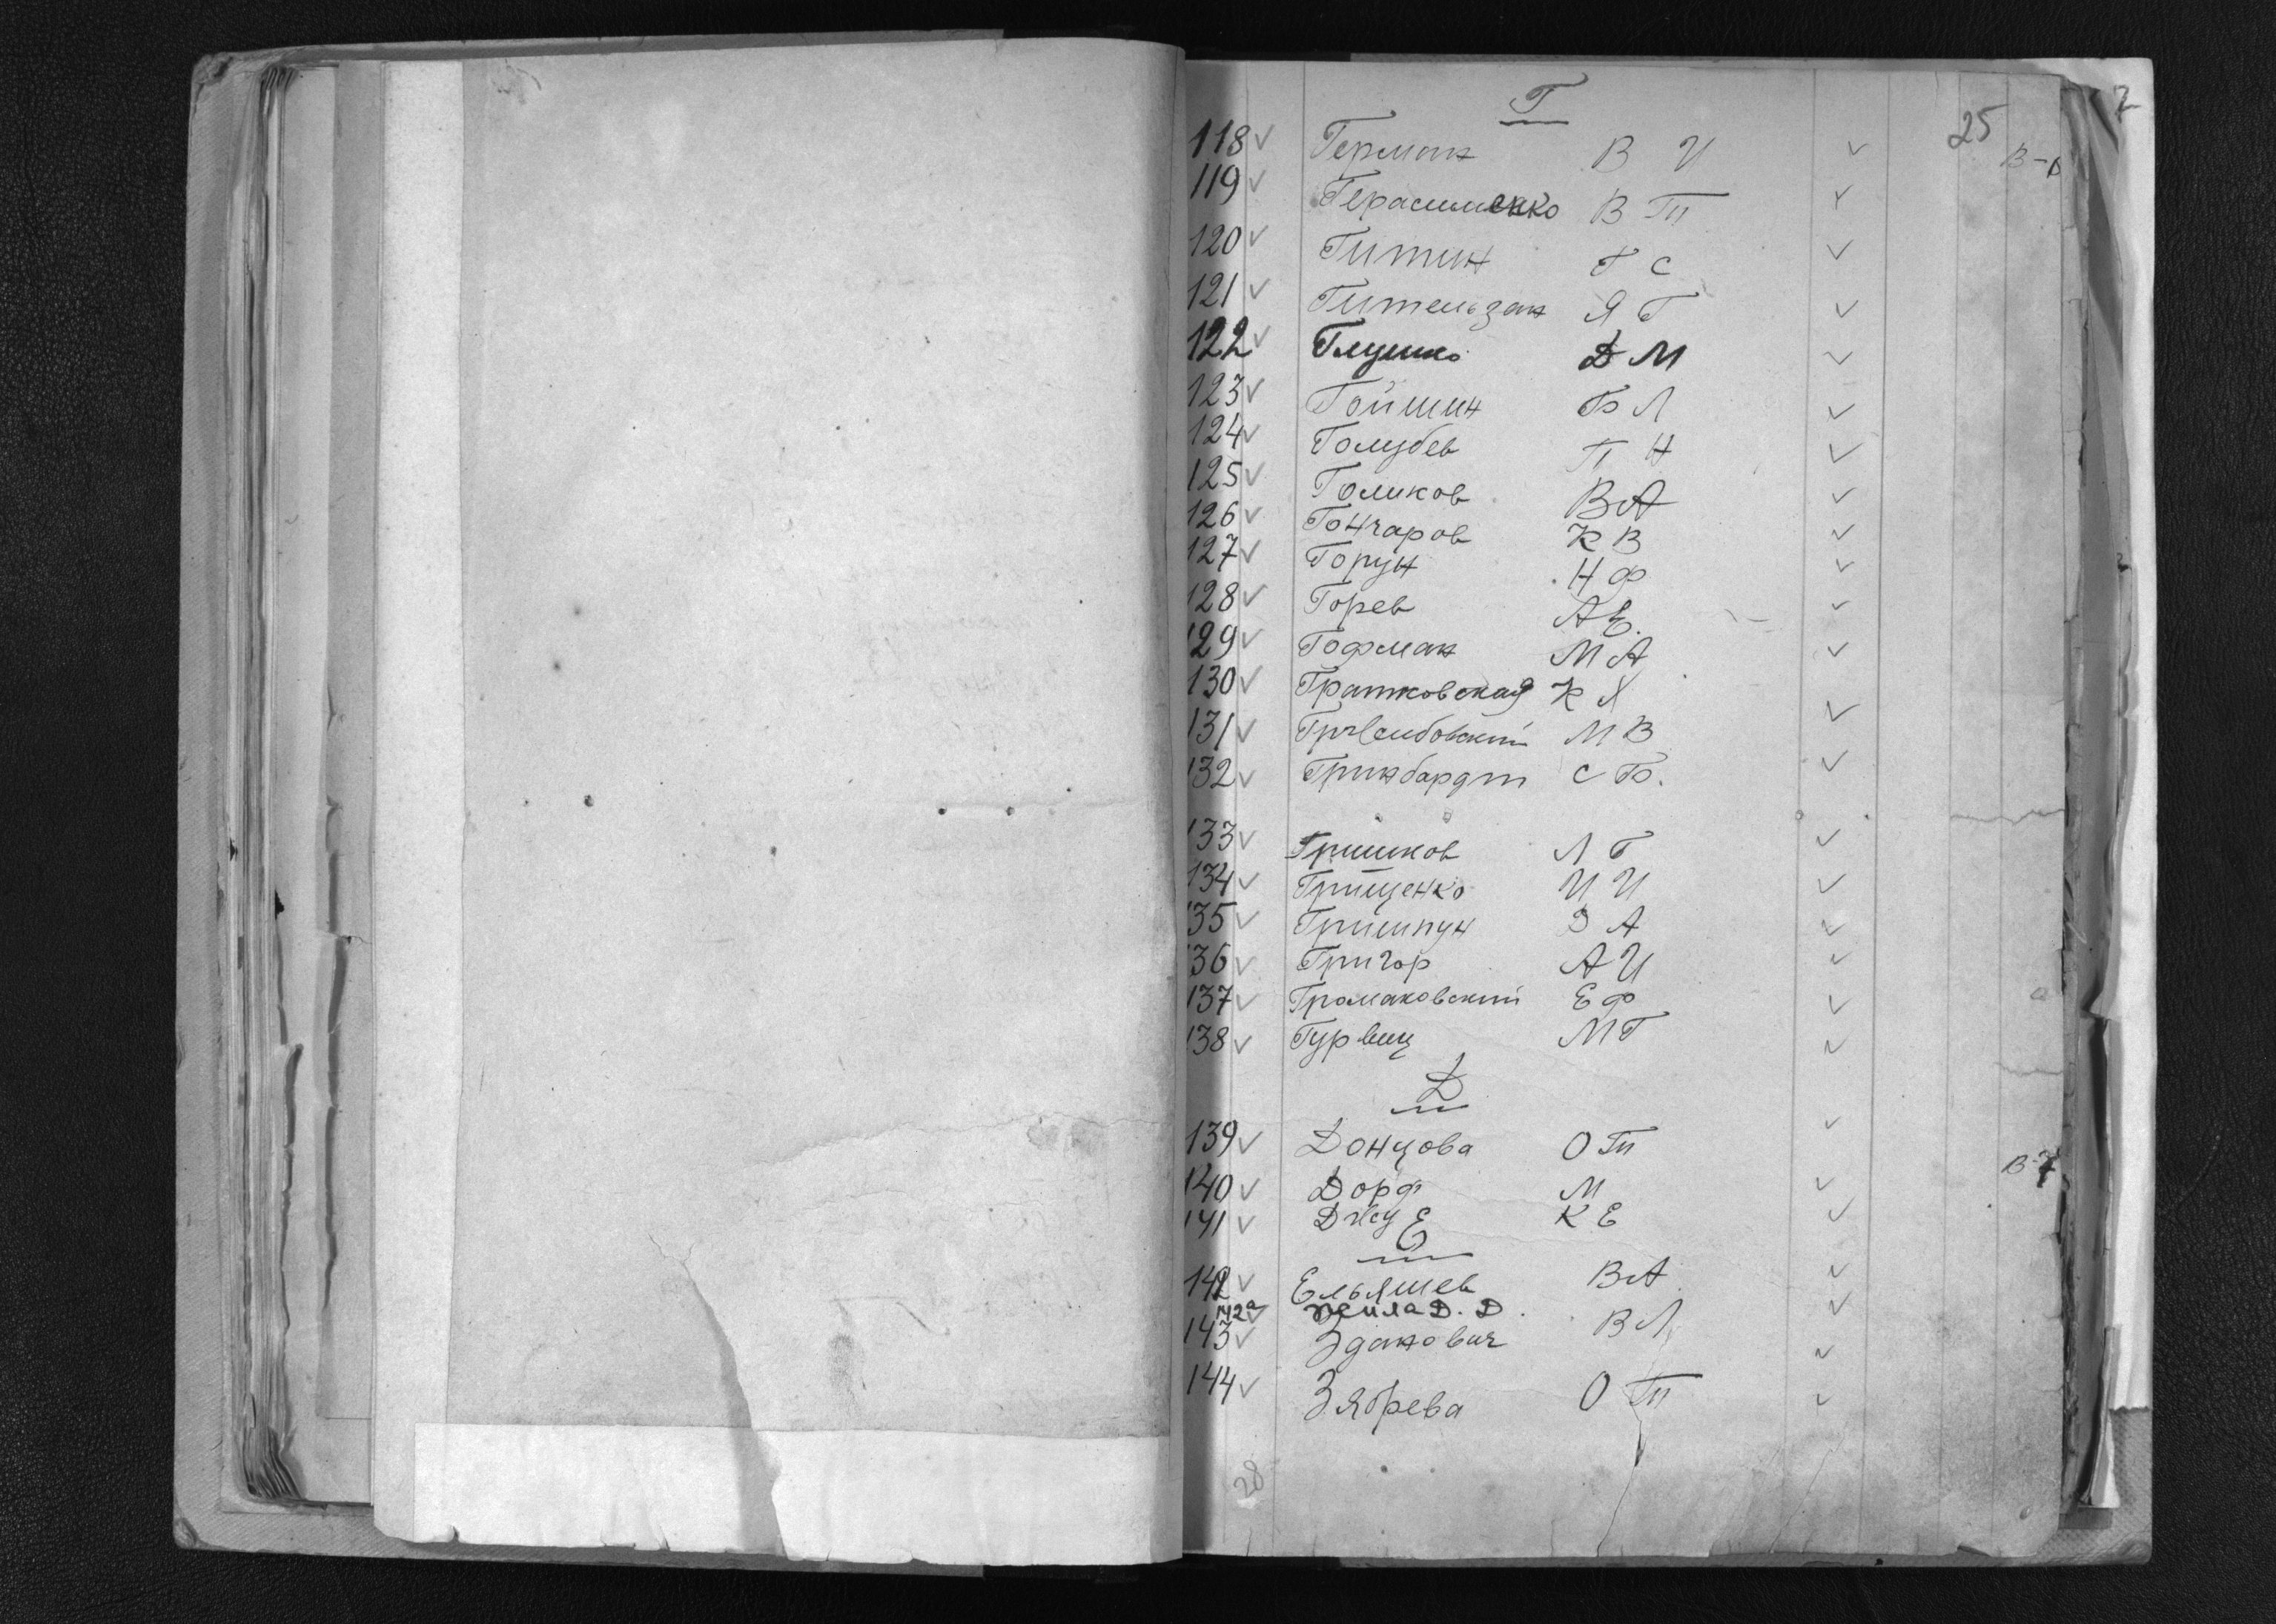 Г
25
118 Герман В И
В-
119 Герасименко В П
120 Гитин Г С
121 Гительзан Я Г
122 Глушко Д М
123 Гойшин Б Л
124 Голубев П Н
125 Голиков В А
126 Гончаров К В
127 Горун Н Ф
128 Горев А Е.
129 Гофман М А
130 Гратковская К Я
131 М В
132 Гринбардт С Б.
133 Гришков Л Г
134 Грищенко И И
135 Гришпун З А
136 Григор А И
137 Громаковский Е Ф
138 Гурвиц М Г
Д
139 Донцова О П
В-7
140 Дорф М
141 К Е
Е
142 Ельяшев В А
142а Д. Д.
143 Зданович В Л
144 Зябрева О П
28